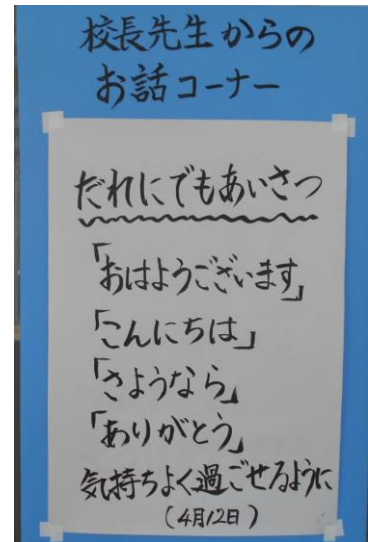 校長先生からの
お話コーナー
だれにでもあいさつ
「おはようございます」
「こんにちは」
「さようなら」
「ありがとう」
気持ちよく過ごせるように
(4月12日)